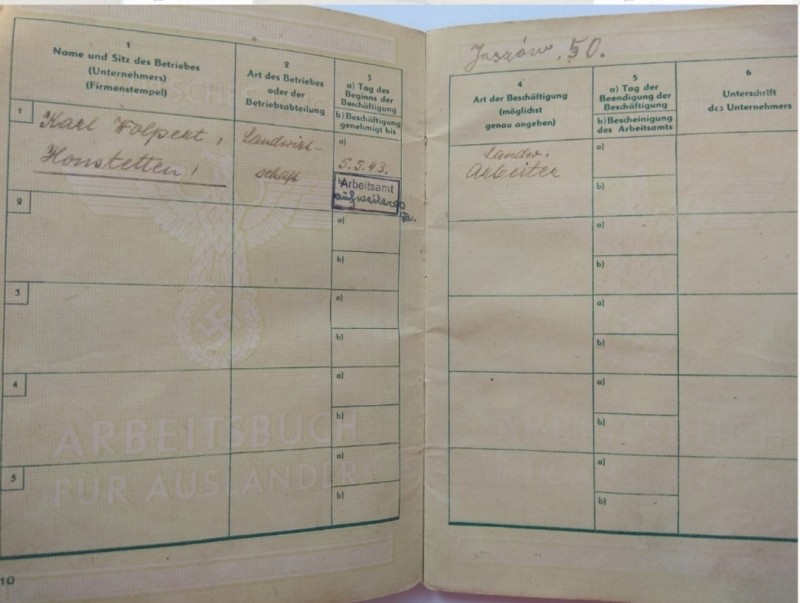 1
Name und Sitz des Betriebes
(Unternehmers)
(Firmenstempel)
2
Art des Betriebes
oder der
Betriebsabteilung
3
a) Tag des
Beginns der
Beschäftigung
b) Beschäftigung
genehmigt bis
1
Karl Volpert,
Honstetten,
Landwirt-
schaft
a)
5.5.43.
b)
Arbeitsamt
auf weiteres
2
a)
b)
3
a)
b)
4
a)
b)
5
a)
b)
ARBEITSBUCH
FÜR AUSLÄNDER
10
50.
4
Art der Beschäftigung
(möglichst
genau angeben)
5
a) Tag der
Beendigung der
Beschäftigung
b) Bescheinigung
des Arbeitsamts
6
Unterschrift
des Unternehmers
Landw.
Arbeiter
a)
b)
a)
b)
a)
b)
a)
b)
a)
b)